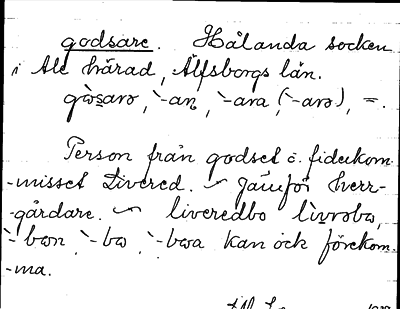 godsare. Hålanda socken
i Ale härad, Älfsborgs län.
gòsarə, `-an, `-ara (`-arə), =.
Person från godset o. fideikom-
-misset Livered. ~ Jämför herr-
-gårdare. ~ liveredbo lìvrəbω,
`-bωn, `-bω, `-bωa kan ock förekom-
-ma.